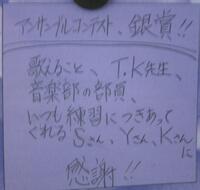 アンサンブルコンテスト、銀賞!!
歌えること、T.K先生、
音楽部の部員、
いつも練習につきあって
くれるSさん、Yさん、Kさん
に
感謝!!